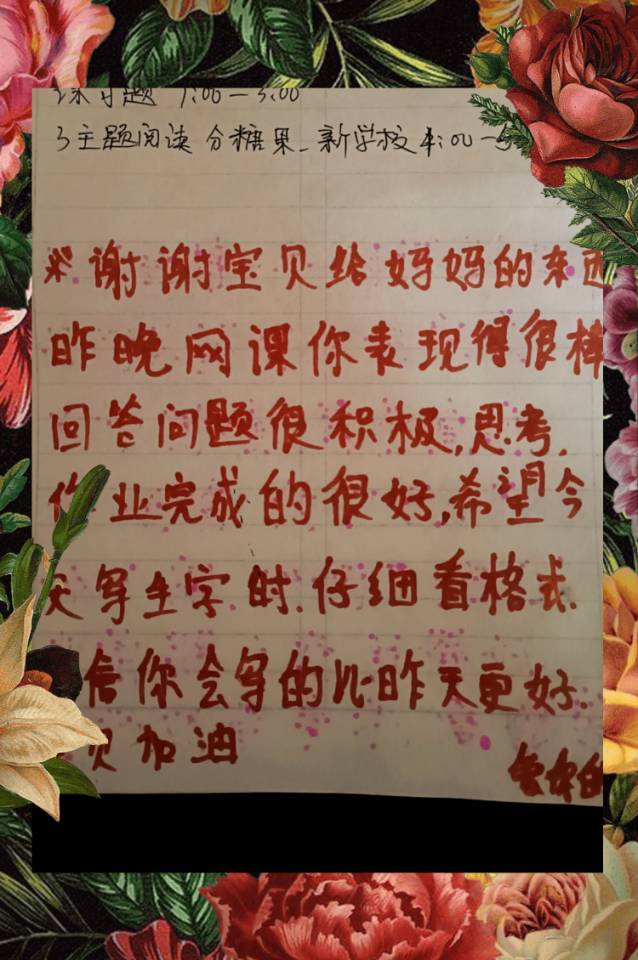 课习题 1:00—3:00
3主题阅读 分糖果、新学校 4:00—5
※谢谢宝贝给妈妈的东西
昨晚网课你表现得很棒
回答问题很积极,思考,
作业完成的很好,希望今
天写生字时,仔细看格式,
信你会写的比昨天更好.
贝加油
爱你的